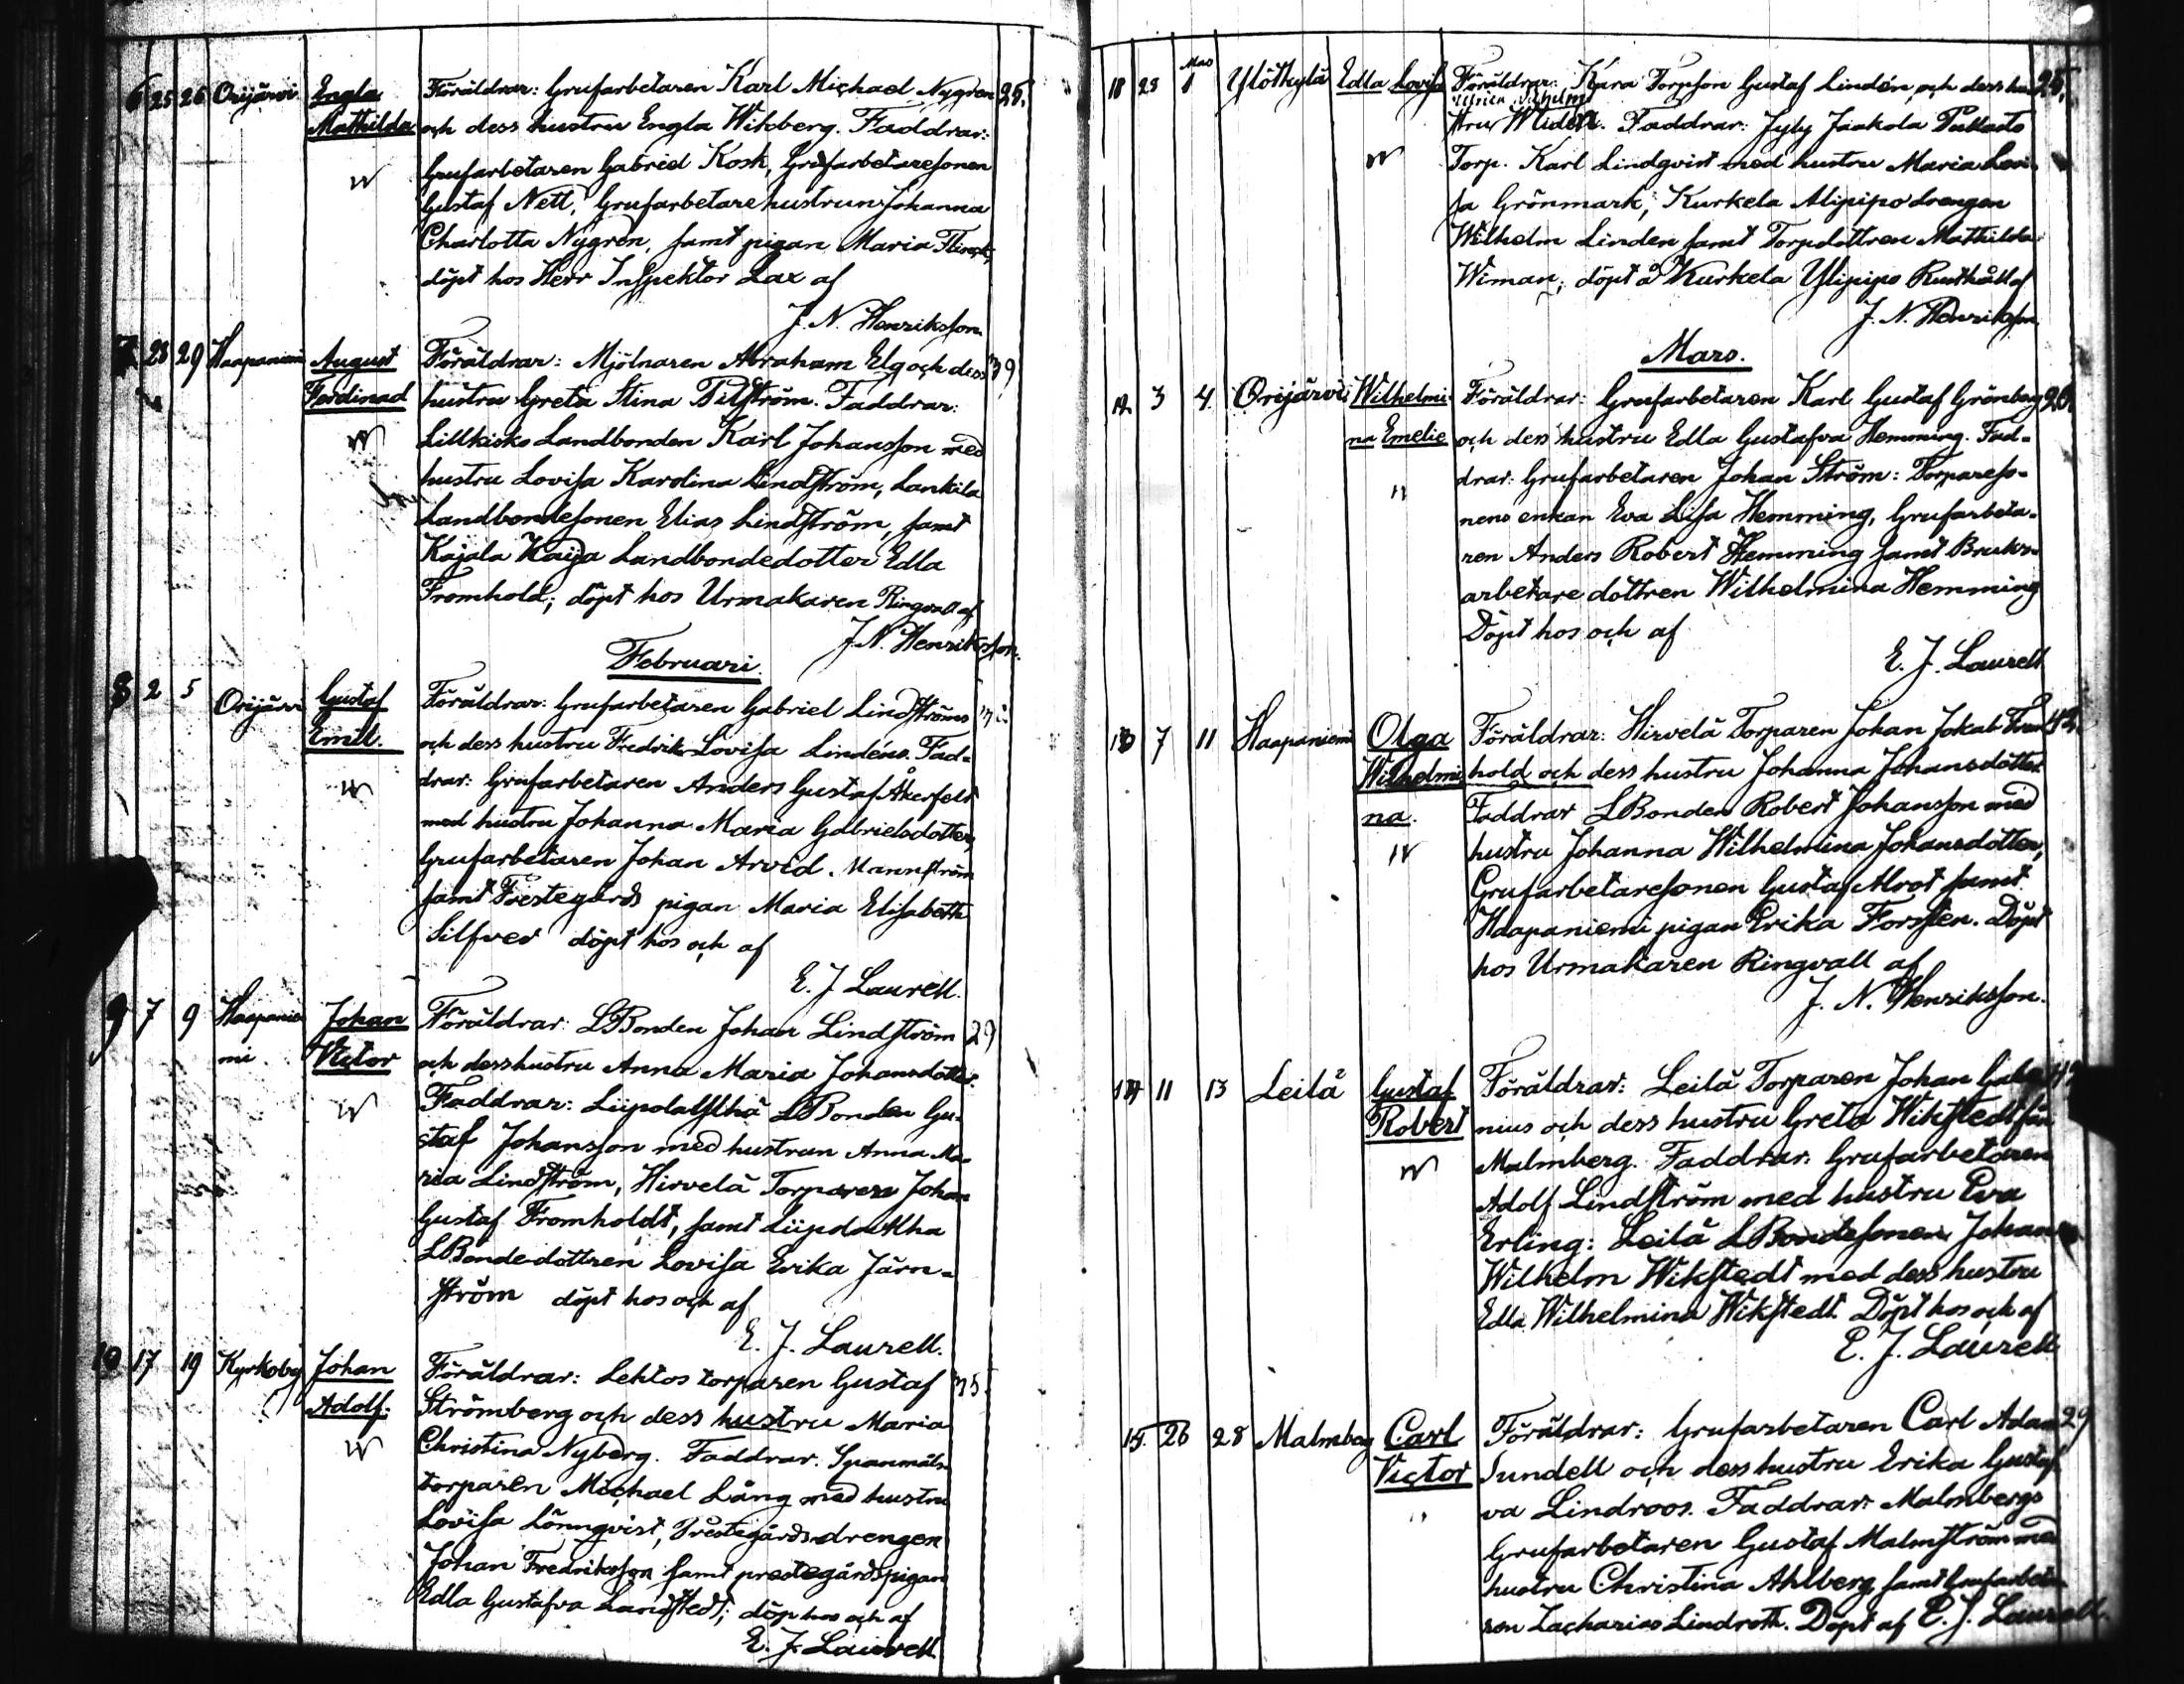 6 25 26 Orijärvi Engla Föräldrar: Grufarbetaren Karl Michael Nygren 26.
Mathilda och dess hustru Engla Wikberg. Faddrar:
Grufarbetaren Gabriel Kosk, Grufarbetaresonen
Gustaf Nett, Grufarbetarehustrun Johanna
Charlotta Nygrén, samt pigan Maria
döpt hos Herr Inspektor Lax af
J. N. Henriksson.
7 28 29 Haapaniemi August Föräldrar: Mjölnaren Abraham Elg och dess 39
Ferdinad hustru Greta Stina Filström. Faddrar:
Lillkisko Landbonden Karl Johansson med
hustru Lovisa Karolina Lindström, Lankila
Landbondesonen Elias Lindström, samt
Kajala Kaija Landbondedotter Edla
Fromhold; döpt hos Urmakaren Ringvall af
J. N. Henriksson.
Februari.
8 2 5 Orijärvi Gustaf Föräldrar: Grufarbetaren Gabriel Lindströms
Emil. och dess hustru Fredrika Lovisa Lindéns. Fad-
drar: Grufarbetaren Anders Gustaf Åkerfelt
med hustru Johanna Maria Gabrielsdotter,
Grufarbetaren Johan Arvid Mannström
samt Prestegårds pigan Maria Elisabeth
Silfver döpt hos och af
E. J. Laurell.
9 7 9 Haapanie Johan Föräldrar: LBonden Johan Lindström 29
mi. Victor och dess hustru Anna Maria Johansdotter.
Faddrar: Liipola Ylhä LBonden Gu-
staf Johansson med hustrun Anna Ma-
ria Lindström, Hirvelä Torparen Johan
Gustaf Fromholdt, samt Liipola Alha
LBonde-dottren Lovisa Erika Järn-
ström döpt hos och af
E. J. Laurell.
10 17 19 Kyrkoby Johan Föräldrar: Lehtos torparen Gustaf 35.
Adolf. Strömberg och dess hustru Maria
Christina Nyberg. Faddrar. Spanmåls
torparen Michael Lång med hustru
Lovisa Lönnqvist, Prestegårdsdrengen
Johan Fredriksson samt prestegårdspigan
Edla Gustafva Landstedt; döp hos och af
E. J. Laurell
18 28 Mars 1 Ylötkylä Edla Lovisa Föräldrar: Kära Torpson Gustaf Lindén och dess hu 25.
Ulrica Vilhelm
stru Widén. Faddrar: Jyly Jaakola
Torp. Karl Lindqvist med hustru Maria Lovi-
sa Grönmark; Kurkela Alipipo drengen
Wilhelm Linden samt Torpdottren Mathilda
Wiman; döpt å Kurkela Ylipipo Rusthåll af
J. N. Henriksson
Mars.
12 3 4 Orijärvi Wilhelmi- Föräldrar: Grufarbetaren Karl Gustaf Grönberg 20
na Emelie och dess hustru Edla Gustafva Hemming. Fad-
drar: Grufarbetaren Johan Ström: Torpareso-
nens enkan Eva Lisa Hemming, Grufarbeta-
ren Anders Robert Hemming samt Bruks-
arbetare dottren Wilhelmina Hemming
Döpt hos och af
E. J. Laurell
13 7 11 Haapaniemi Olga Föräldrar: Hirvelä Torparen Johan Jakob From 42.
Wilhelmi hold och dess hustru Johanna Johansdotter
na. Faddrar LBonden Robert Johansson med
hustru Johanna Wilhelmina Johansdotter,
Grufarbetaresonen Gustaf Alrot samt
Haapaniemi pigan Erika Forssten. Döpt
hos Urmakaren Ringvall af
J. N. Henriksson.
14 11 13 Leilä Gustaf Föräldrar: Leilä Torparen Johan
Robert nius och dess hustru Greta Wikstedt
Malmberg. Faddrar: Grufarbetaren
Adolf Lindström med hustru Eva
Erling: Leilä LBondesonen Johan
Wilhelm Wikstedt med dess hustru
Edla Wilhelmina Wikstedt. Döpt hos och af
E. J. Laurell
15. 26 28 Malmberg Carl Föräldrar: Grufarbetaren Carl Adam 29
Victor Sundell och dess hustru Erika Gustaf
va Lindroos. Faddrar: Malmbergs
Grufarbetaren Gustaf Malmström med
hustru Christina Ahlberg, samt Grufarbeta-
ren Zacharias Lindroth. Döpt af E. J. Laurell.